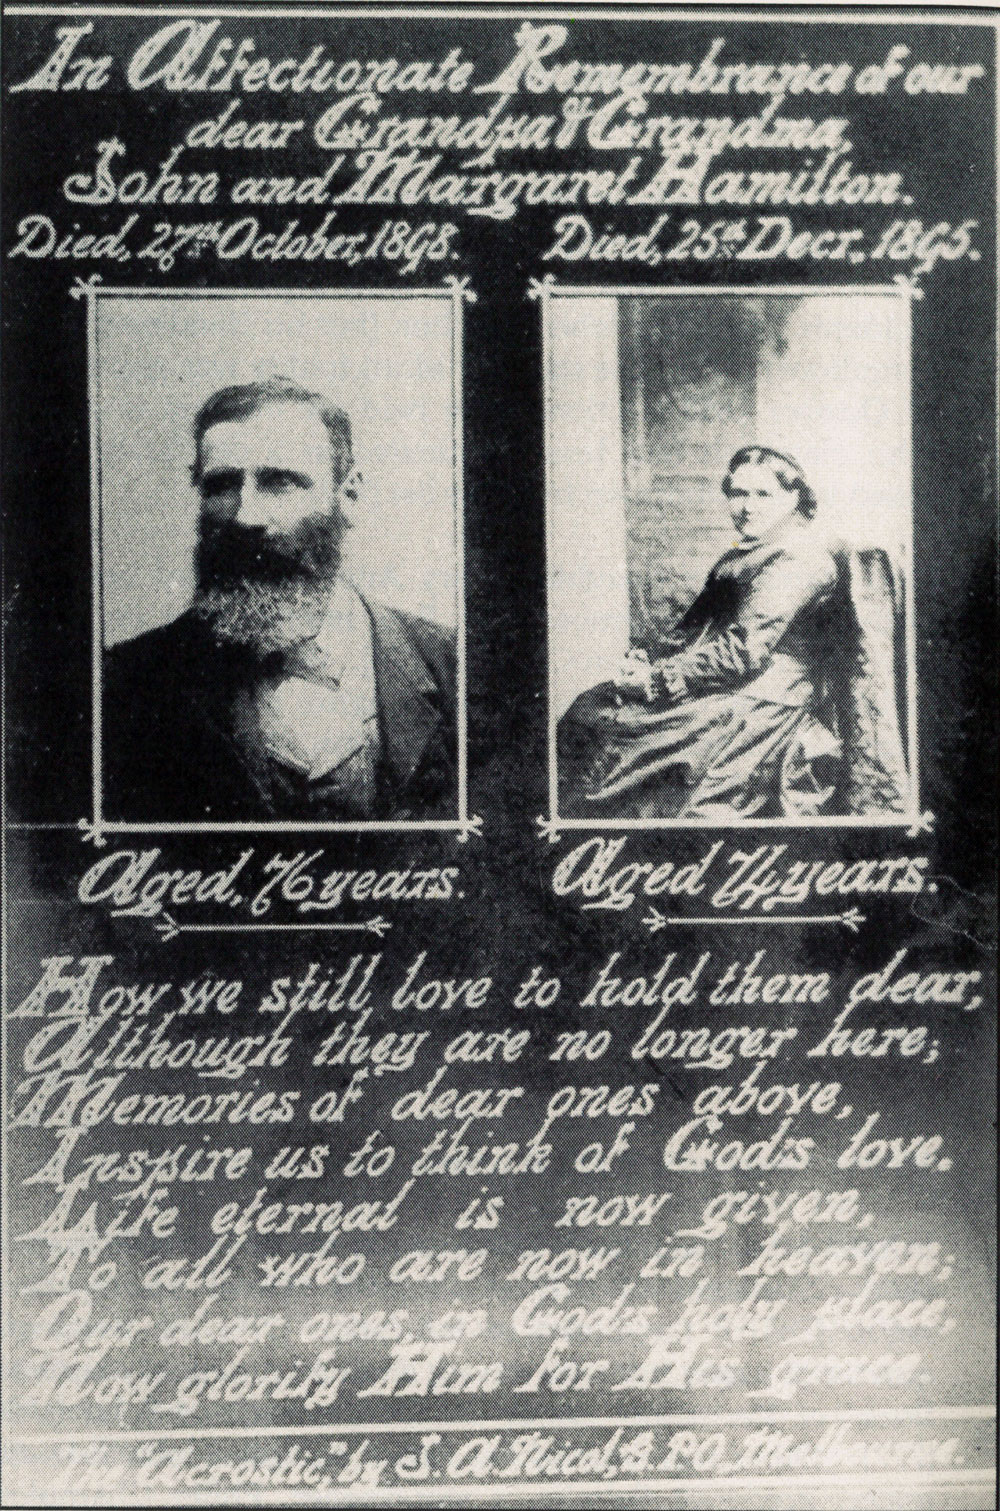 In Affectionate Remembrance of our
dear Grandpa & Grandma,
John and Margaret Hamilton.
Died, 27th October, 1898. Died, 25th Decr., 1895.
Aged, 76 years. Aged 74 years.
How we still love to hold them dear,
Although they are no longer here;
Memories of dear ones above,
Inspire us to think of God's love.
Life eternal is now given,
To all who are now in heaven;
Our dear ones, in God's holy place,
Now glorify Him for His grace.
The "Acrostic," by J. A. Nicol, G. P.O., Melbourne.